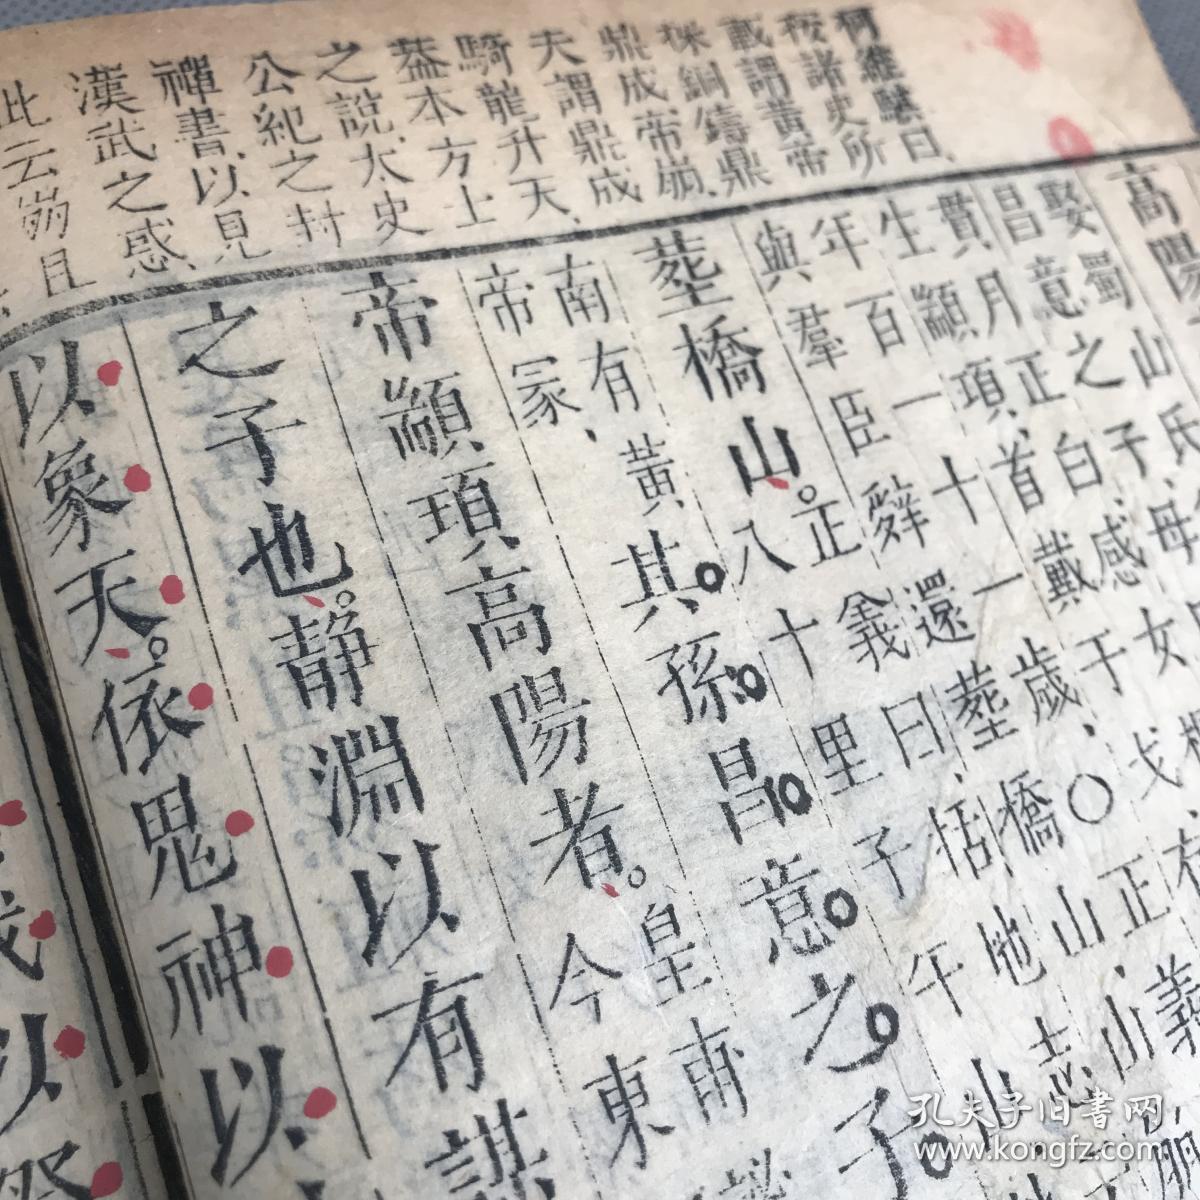 何維騏曰
按諸史所
載謂黃帝
採銅鑄鼎
鼎成帝崩
夫謂鼎成
騎龍升天
葢本方士
之說太史
公紀之封
禪書以見
漢武之惑
此云崩且
高陽
娶蜀山氏母
昌意之子感女
黃月正白戴于戈
生顓頊首
年百一十一歲○正義
與羣臣辭還葬橋山山
葬橋山。
正義曰括地志
八十里子午山
其孫昌意之子
南有黃
帝冢
帝顓頊高陽者。
皇甫
今東
之子也。靜淵以有謀
以象天。依鬼神以
以
孔夫子旧书网
www.kongfz.com